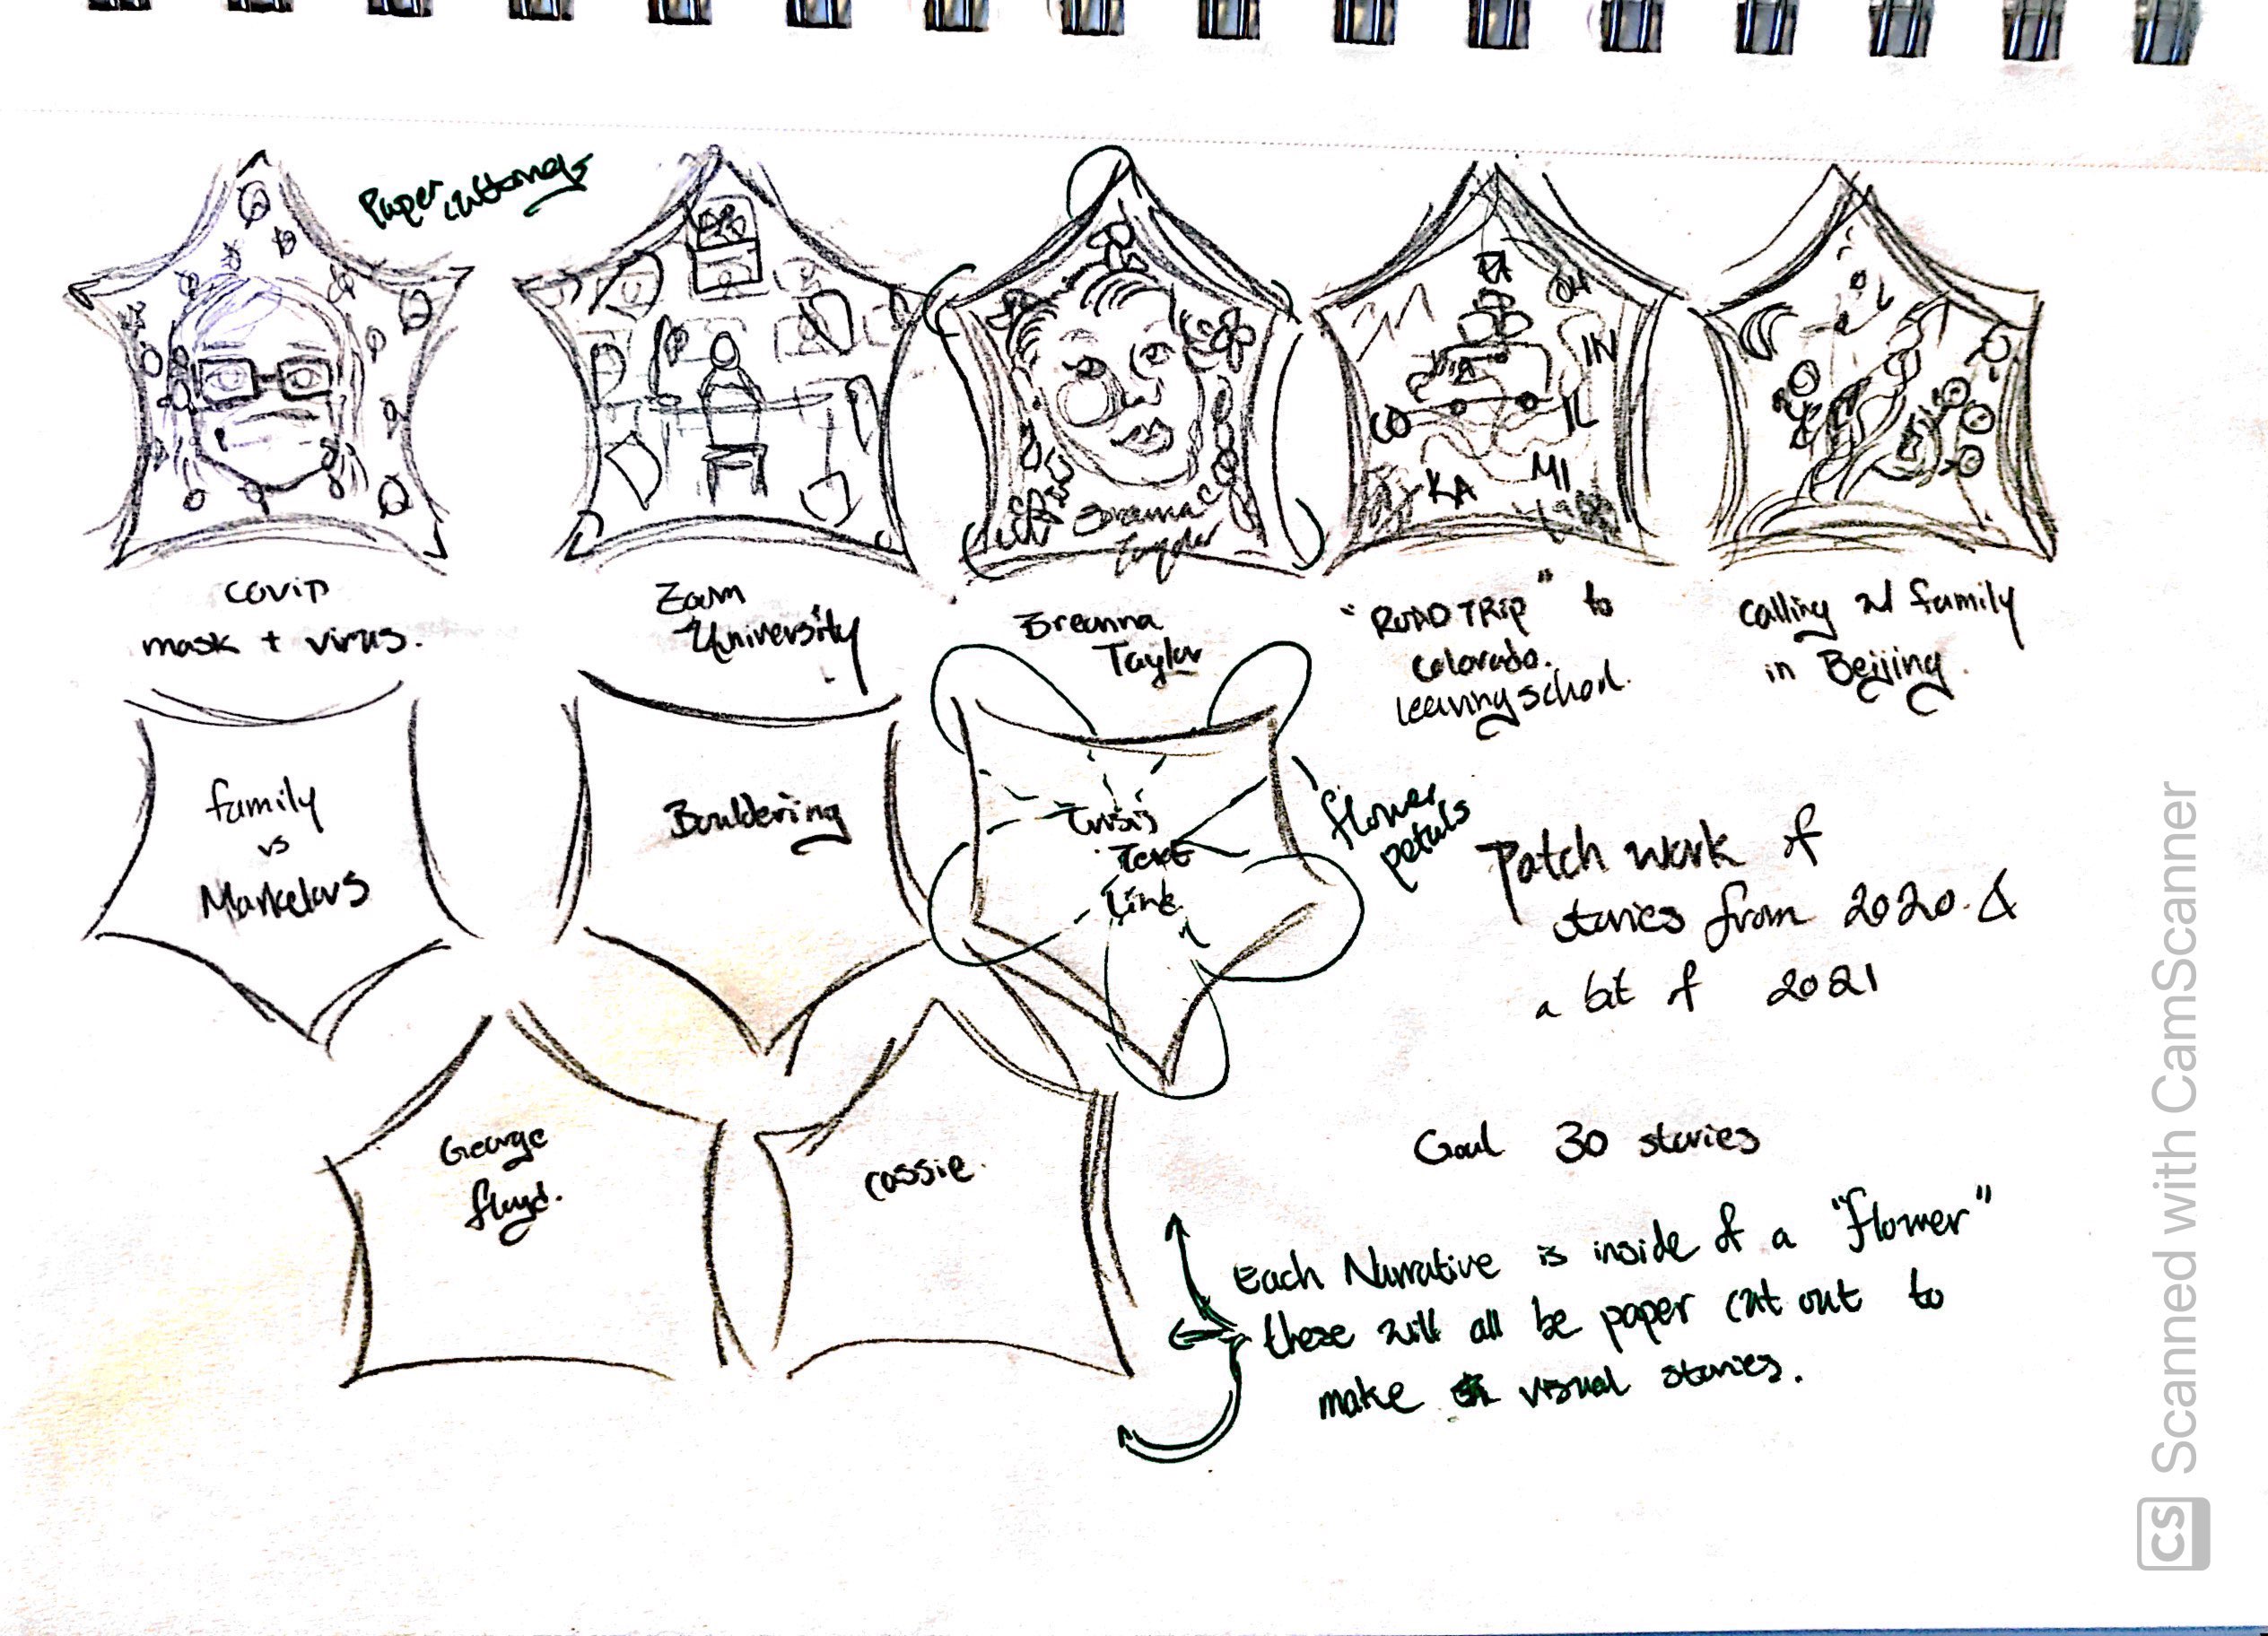 Paper cuttings
PA
OH
IN
IL
MI
KA
CO
Breanna
Taylor
COVID
mask + virus.
Zoom
University
Breanna
Taylor
"ROAD TRIP" to
Colorado.
leaving school.
Calling w/ family
in Beijing.
family
vs
Markelovs
Bouldering
Crisis
Text
Line
flower
petals
Patch work of
stories from 2020 &
a bit of 2021
George
floyd.
cassie.
Goal 30 stories
Each Narrative is inside of a "flower"
these will all be paper cut out to
make visual stories.
CS Scanned with CamScanner